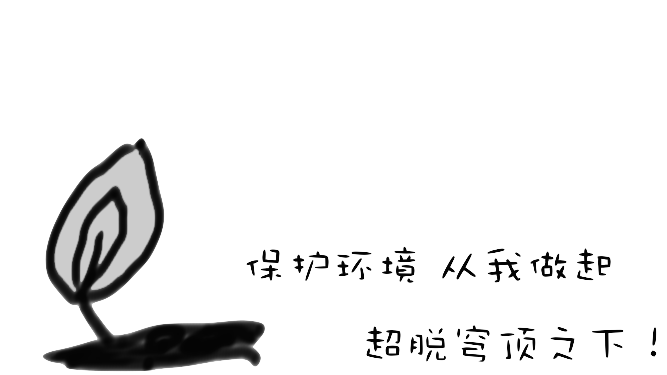 保护环境 从我做起
超脱穹顶之下！